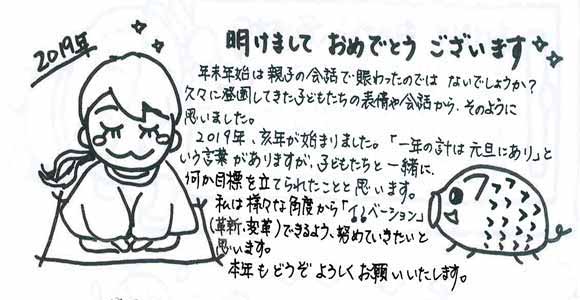 2019年
明けまして おめでとう ございます
年末年始は親子の会話で賑わったのでは ないでしょうか?
久々に登園してきた子どもたちの表情や会話から、そのように
思いました。
2019年、亥年が始まりました。「一年の計は元旦にあり」と
いう言葉がありますが、子どもたちと一緒に、
何か目標を立てられたことと思います。
私は様々な角度から「イノベーション」
(革新、変革)できるよう、努めていきたいと
思います。
本年もどうぞよろしくお願いいたします。